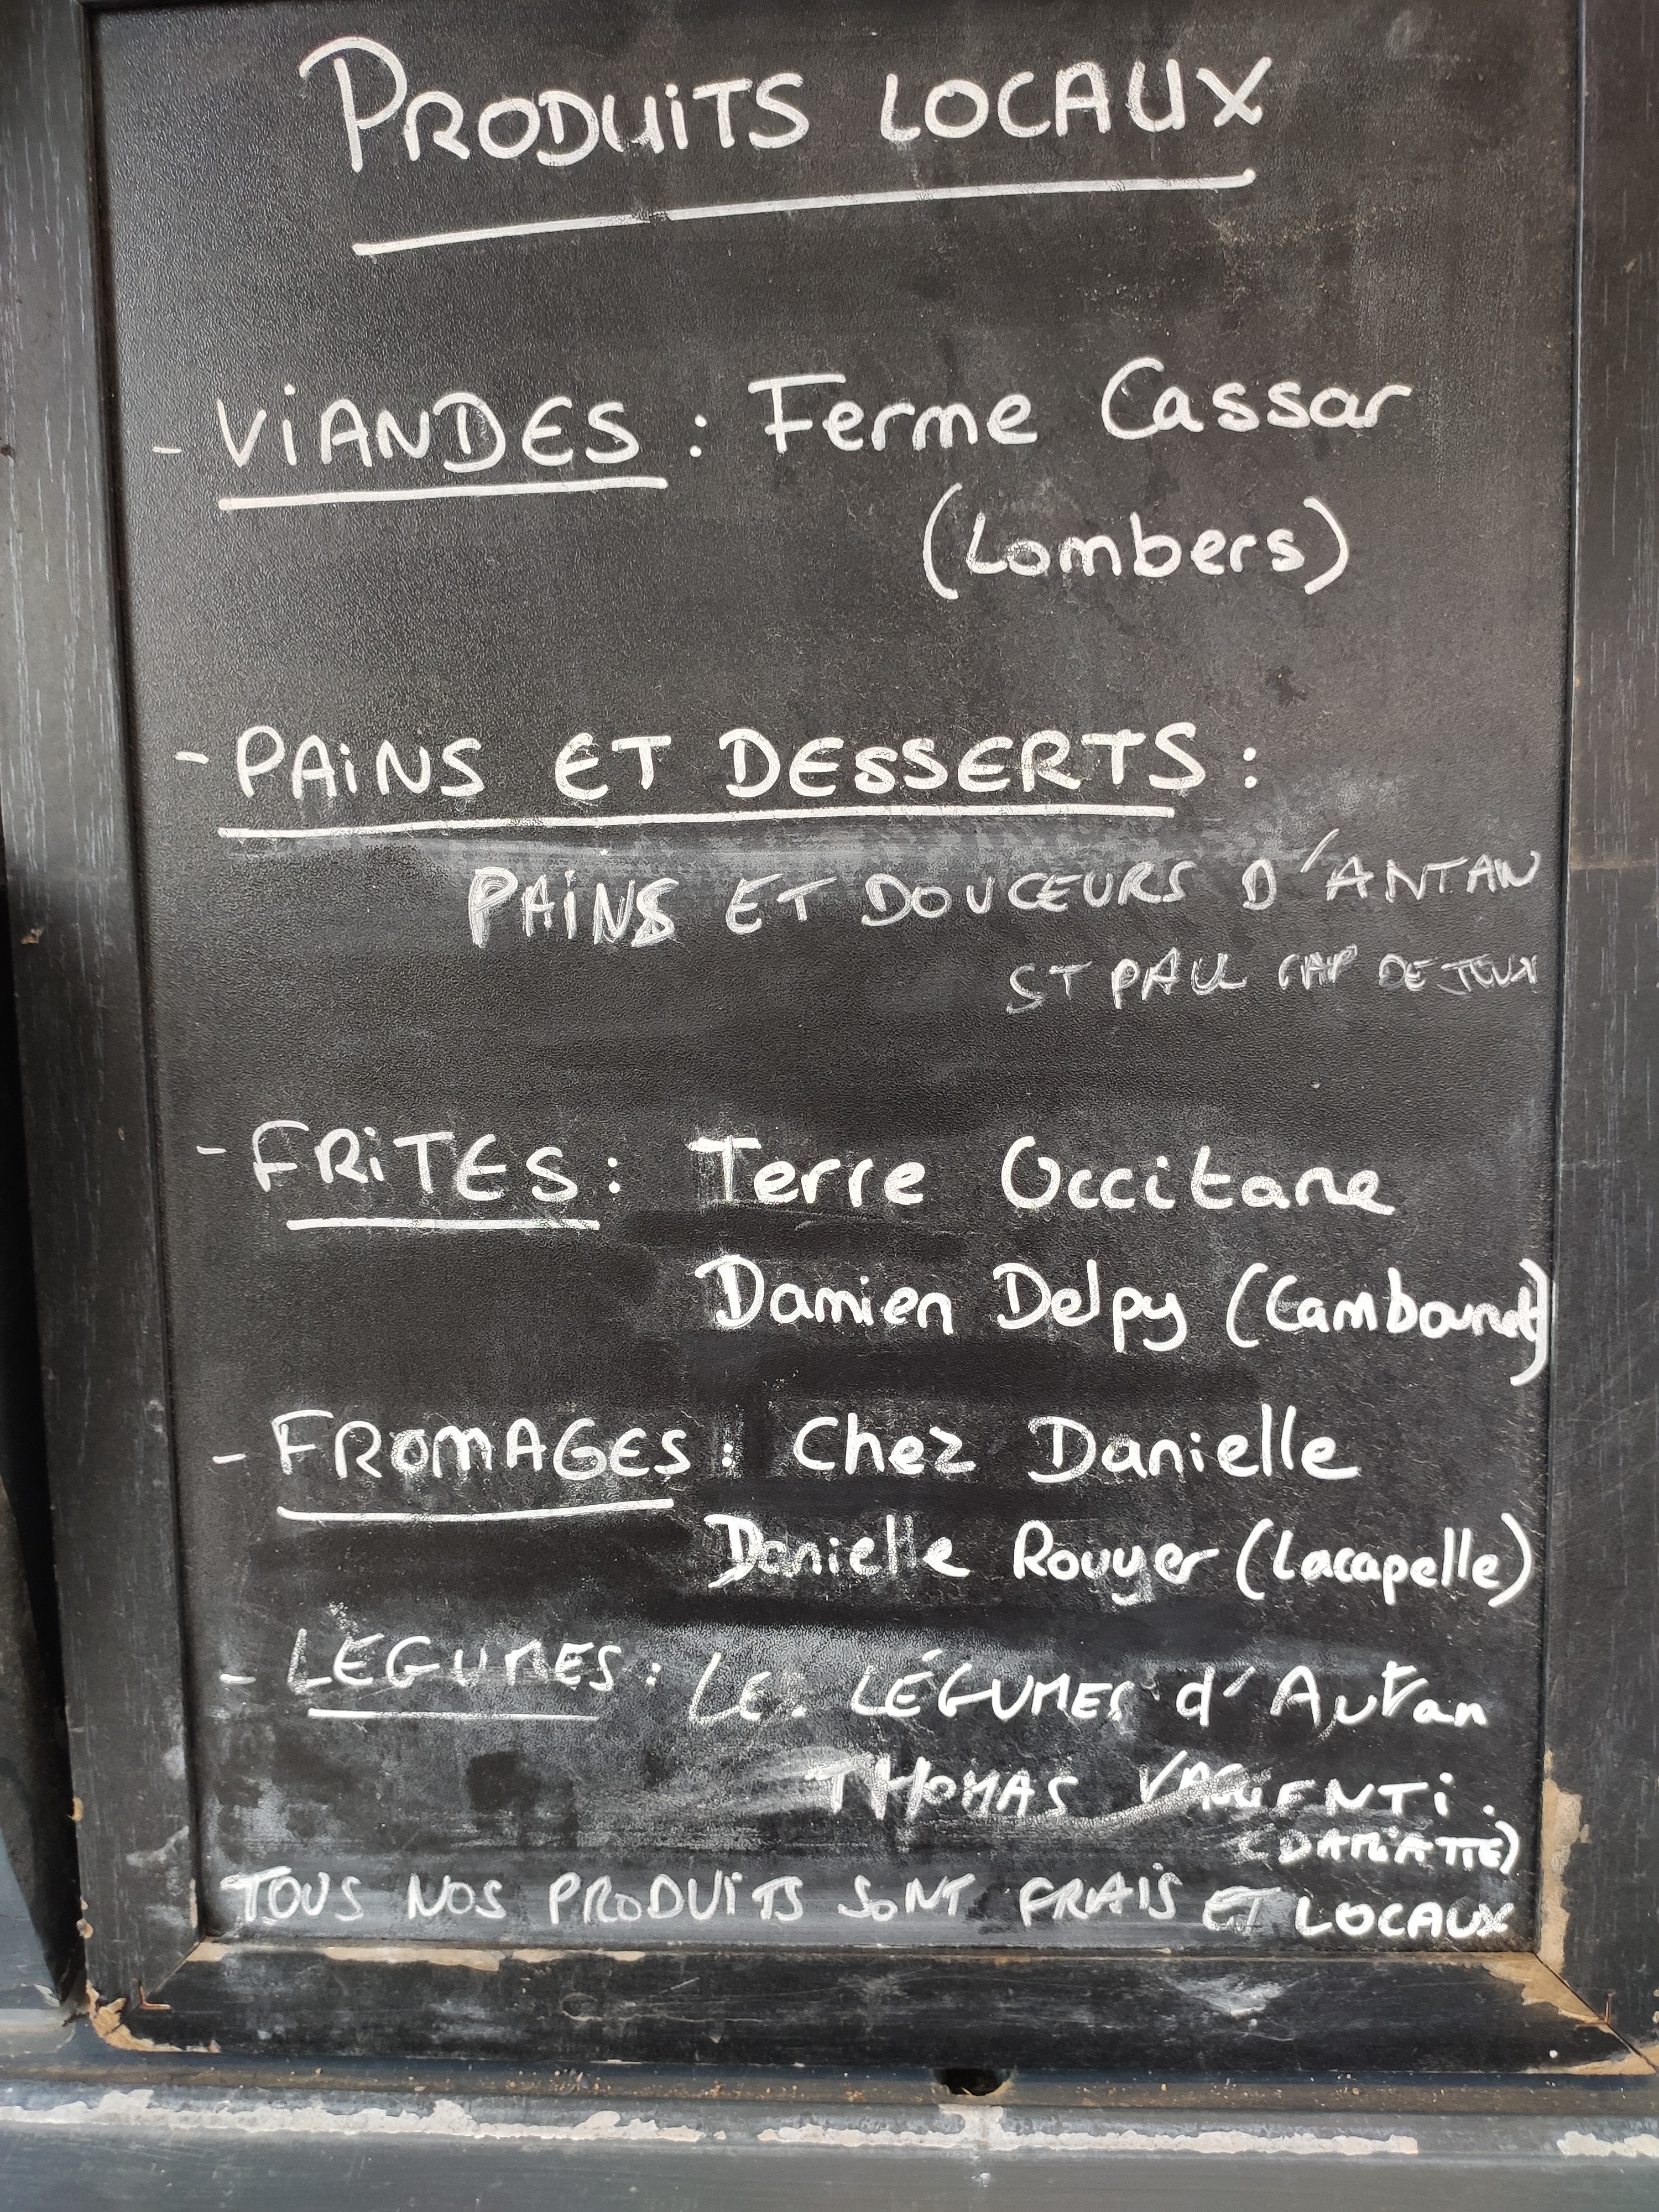 PRODUITS LOCAUX
- VIANDES : Ferme Cassar
(Lombers)
- PAINS ET DESSERTS :
PAINS ET DOUCEURS D'ANTAN
ST PAUL CAP DE JOUX
- FRITES : Terre Occitane
Damien Delpy (Cambounet)
- FROMAGES : Chez Danielle
Danielle Rouyer (Lacapelle)
- LÉGUMES : LES LÉGUMES d'Autan
THOMAS
(DAMIATTE)
TOUS NOS PRODUITS SONT FRAIS ET LOCAUX